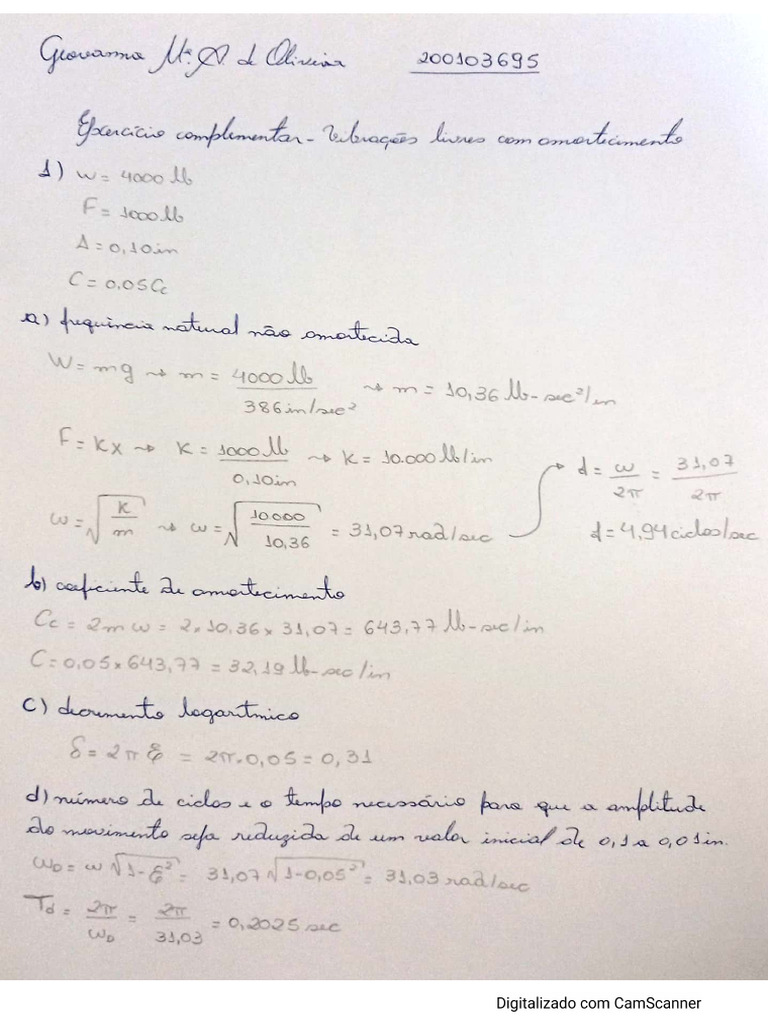 Giovanna Mª A de Oliveira 200103695
Exercício complementar - Vibrações livres com amortecimento
1) W = 4000 lb
F = 1000 lb
Δ = 0,10in
C = 0.05Cc
a) frequência natural não amortecida
W = mg → m = 4000 lb / 386in/sec² → m = 10,36 lb-sec²/in
F = Kx → K = 1000 lb / 0,10in → K = 10.000 lb/in
ω = √K/m → ω = √10000/10,36 = 31,07 rad/sec → f = ω/2π = 31,07/2π
f = 4,94 ciclos/sec
b) coeficiente de amortecimento
Cc = 2mω = 2 × 10,36 × 31,07 = 643,77 lb-sec/in
C = 0,05 × 643,77 = 32,19 lb-sec/in
c) decremento logarítmico
δ = 2πξ = 2π.0,05 = 0,31
d) número de ciclos e o tempo necessário para que a amplitude
do movimento seja reduzida de um valor inicial de 0,1 a 0,01in.
ωD = ω√1-ξ² = 31,07√1-0,05² = 31,03 rad/sec
Td = 2π/ωD = 2π/31,03 = 0,2025 sec
Digitalizado com CamScanner